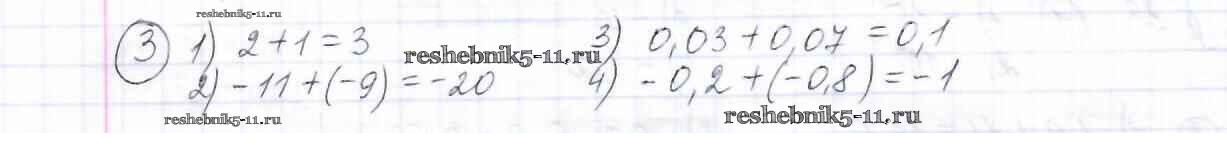 reshebnik5-11.ru
3 1) 2+1=3
3) 0,03+0,07=0,1
reshebnik5-11.ru
2) -11+(-9)=-20
4) -0,2+(-0,8)=-1
reshebnik5-11.ru
reshebnik5-11.ru